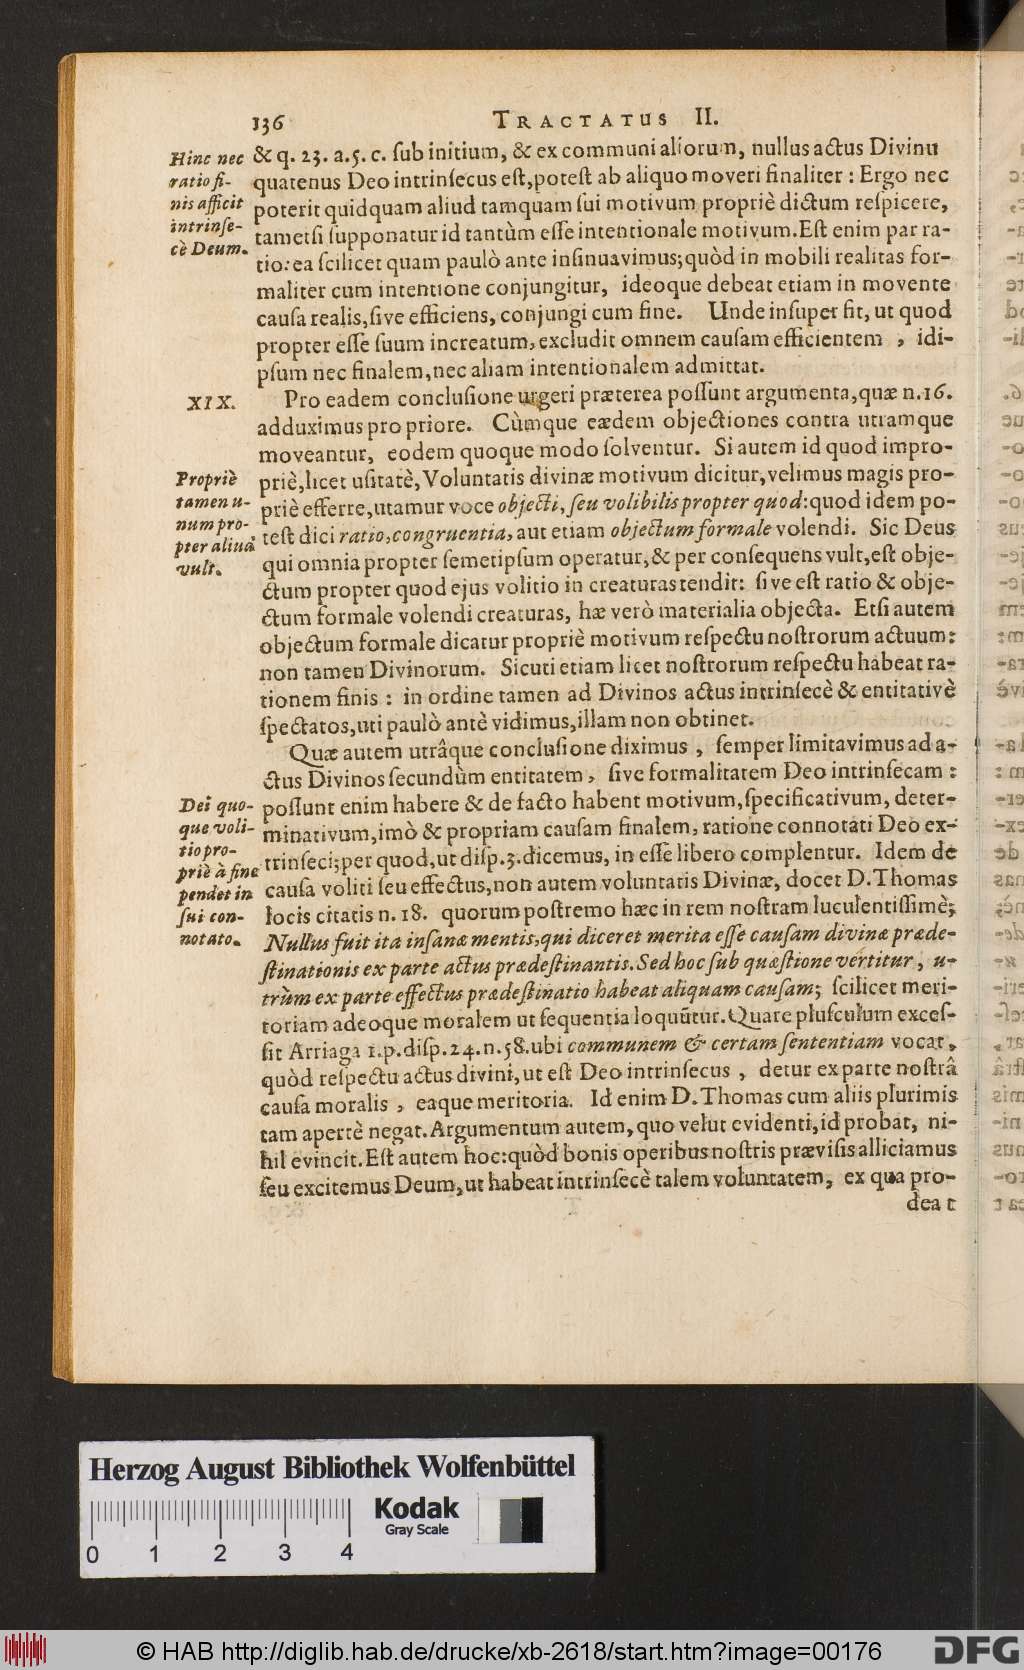 136 TRACTATUS II.
Hinc nec
ratio fi-
nis afficit
intrinſe-
cè Deum.
& q. 23. a.5. c. ſub initium, & ex communi aliorum, nullus actus Divinu
quatenus Deo intrinſecus eſt,poteſt ab aliquo moveri finaliter : Ergo nec
poterit quidquam aliud tamquam ſui motivum propriè dictum reſpicere,
tametſi ſupponatur id tantùm eſſe intentionale motivum.Eſt enim par ra-
tio: ea ſcilicet quam paulò ante inſinuavimus;quòd in mobili realitas for-
maliter cum intentione conjungitur, ideoque debeat etiam in movente
cauſa realis,ſive efficiens, conjungi cum fine. Unde inſuper fit, ut quod
propter eſſe ſuum increatum, excludit omnem cauſam efficientem , idi-
pſum nec finalem,nec aliam intentionalem admittat.
XIX.
Pro eadem concluſione urgeri præterea poſſunt argumenta,quæ n.16.
adduximus pro priore. Cùmque eædem objectiones contra utramque
moveantur, eodem quoque modo ſolventur. Si autem id quod impro-
Propriè
tamen u-
num pro-
pter aliud
vult.
priè,licet uſitatè,Voluntatis divinæ motivum dicitur,velimus magis pro-
priè efferre,utamur voce objecti, ſeu volibilis propter quod:quod idem po-
teſt dici ratio,congruentia, aut etiam objectum formale volendi. Sic Deus
qui omnia propter ſemetipſum operatur,& per conſequens vult,eſt obje-
ctum propter quod ejus volitio in creaturas tendit: ſive eſt ratio & obje-
ctum formale volendi creaturas, hæ verò materialia objecta. Etſi autem
objectum formale dicatur propriè motivum reſpectu noſtrorum actuum:
non tamen Divinorum. Sicuti etiam licet noſtrorum reſpectu habeat ra-
tionem finis : in ordine tamen ad Divinos actus intrinſecè & entitativè
ſpectatos,uti paulò antè vidimus,illam non obtinet.
Quæ autem utrâque concluſione diximus , ſemper limitavimus ad a-
ctus Divinos ſecundùm entitatem, ſive formalitatem Deo intrinſecam :
Dei quo-
que voli-
tio pro-
priè à fine
pendet in
ſui con-
notato.
poſſunt enim habere & de facto habent motivum,ſpecificativum, deter-
minativum,imò & propriam cauſam finalem, ratione connotati Deo ex-
trinſeci;per quod,ut diſp.3.dicemus, in eſſe libero complentur. Idem de
cauſa voliti ſeu effectus,non autem voluntatis Divinæ, docet D.Thomas
locis citatis n. 18. quorum poſtremo hæc in rem noſtram luculentiſſimè;
Nullus fuit ita inſanæ mentis,qui diceret merita eſſe cauſam divinæ præde-
ſtinationis ex parte actus prædeſtinantis. Sed hoc ſub quæſtione vertitur, u-
trùm ex parte effectus prædeſtinatio habeat aliquam cauſam; ſcilicet meri-
toriam adeoque moralem ut ſequentia loquũtur.Quare pluſculum exceſ-
ſit Arriaga 1.p.diſp.24.n.58.ubi communem & certam ſententiam vocat,
quòd reſpectu actus divini,ut eſt Deo intrinſecus , detur ex parte noſtrâ
cauſa moralis , eaque meritoria. Id enim D.Thomas cum aliis plurimis
tam apertè negat.Argumentum autem, quo velut evidenti,id probat, ni-
hil evincit.Eſt autem hoc:quòd bonis operibus noſtris præviſis alliciamus
ſeu excitemus Deum,ut habeat intrinſecè talem voluntatem, ex qua pro-
deat
Herzog August Bibliothek Wolfenbüttel
Kodak
Gray Scale
0 1 2 3 4
© HAB http://diglib.hab.de/drucke/xb-2618/start.htm?image=00176
DFG